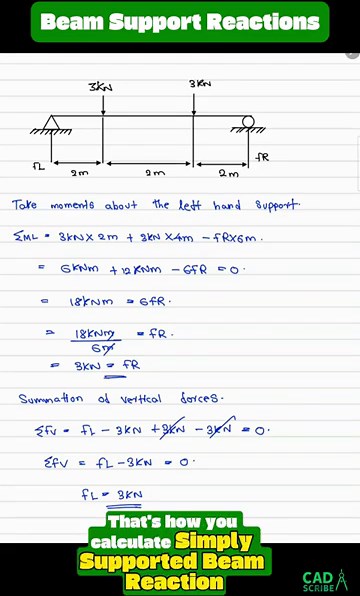 Beam Support Reactions
3KN 3KN
fL fR
2m 2m 2m
Take moments about the left hand support.
ΣML = 3KN X 2m + 3KN X 4m - fR X 6m.
= 6KNm + 12KNm - 6fR = 0.
= 18KNm = 6fR.
= 18KNm = fR.
6m
= 3KN = fR
Summation of vertical forces.
Σfv = fL - 3KN + 3KN - 3KN = 0.
Σfv = fL - 3KN = 0.
fL = 3KN
That's how you
calculate Simply
Supported Beam
Reaction
CAD
SCRIBE